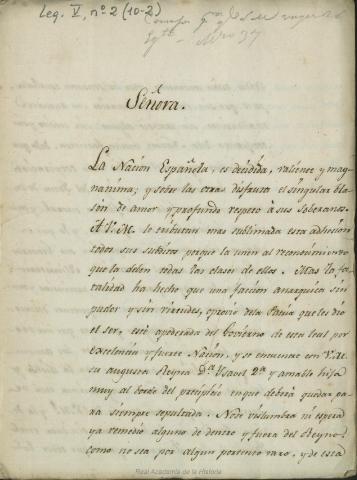 Leg. V, nº 2 (10-2)
Señora.
La Nacion Española, es decidida, valiente y mag-
nanima; y sobre las otras disfruta el singular bla-
son de amor y profundo respeto à sus Soberanos.
A V.M. le tributan mas sublimada esta adhesion
todos sus subditos porque la unen al reconocimiento
que la deben todas las clases de ellos. Mas la fa-
talidad ha hecho que una faccion anarquica sin
pudor y sin virtudes, oprovio de la Patria que les dió
el ser, esté apoderada del Gobierno de esta leal por
excelencia y fuerte Nacion, y se encuentre con V.M.
su augusta Reyna Dª Ysavel 2ª y amable hija
muy al borde del precipicio en que deberá quedar pa-
ra siempre sepultada. No se vislumbra ni espera
ya remedio alguno de dentro y fuera del Reyno:
como no sea por algun portento raro, y de esta
Real Academia de la Historia